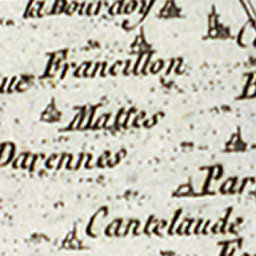 la Bourdoy
Francillon
Mattes
Darennes
Par
Cantelaude